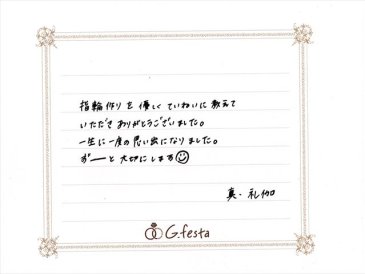 指輪作りを優しくていねいに教えて
いただきありがとうございました。
一生に一度の思い出になりました。
ずーっと大切にします
真・礼伽
G.festa